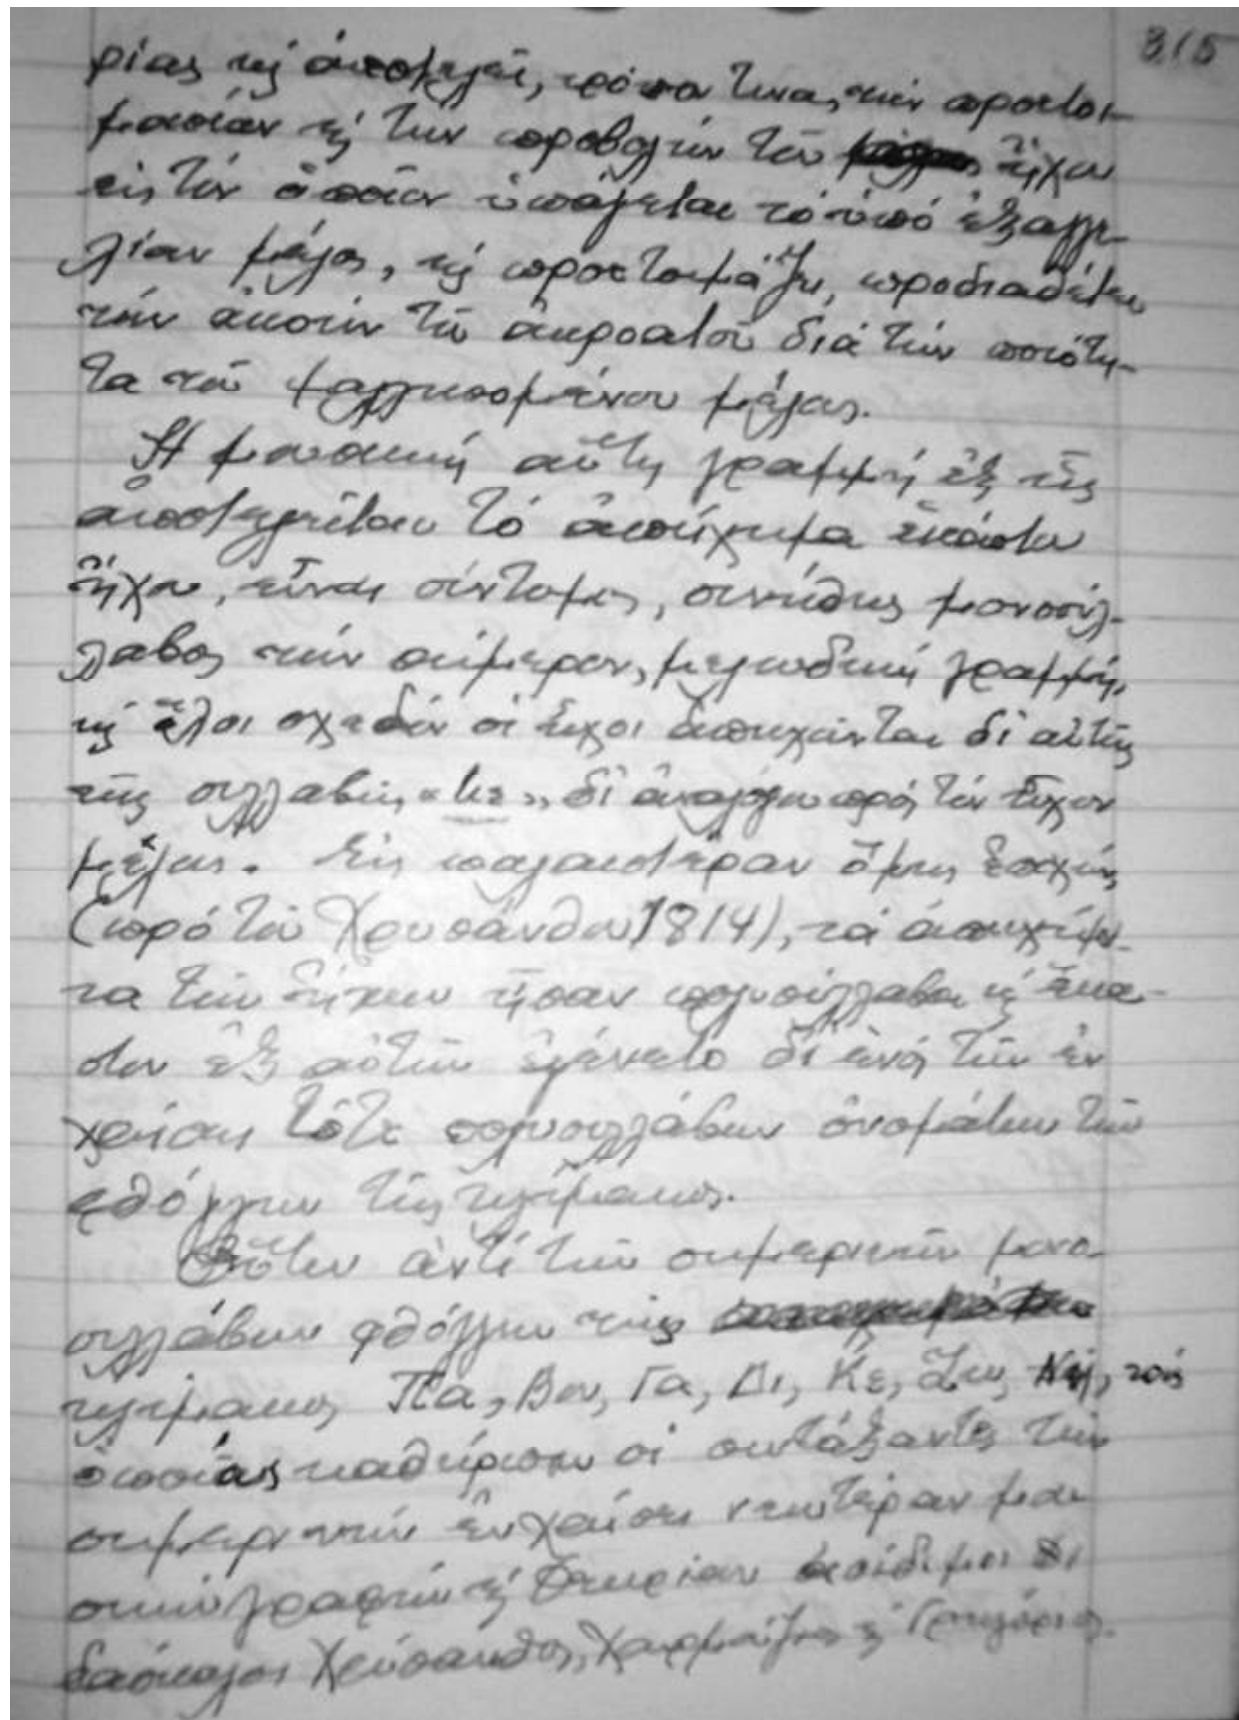 315
ρίας κ̀ ἀποτελεῖ, τρόπον τινα, τήν προετοι-
μασίαν κ̀ τήν προβολήν τοῦ ἤχου
εἰς τόν ὁποῖον ὑπάγεται τό ὑπό ἐξαγγε-
λίαν μέλος, κ̀ προετοιμάζει, προδιαθέτει
τήν ἀκοήν τοῦ ἀκροατοῦ διά τήν ποιότη-
τα τοῦ μέλους.
Ἡ μουσική αὕτη γραμμή ἐξ ἧς
ἀποτελεῖται τό ἀπήχημα ἑκάστου
ἤχου, εἶναι σύντομος, συνήθως μονοσύλ-
λαβος τήν σήμερον, μελωδική γραμμή,
κ̀ ὅλοι σχεδόν οἱ ἦχοι ἀπηχοῦνται δι' αὐτῆς
τῆς συλλαβῆς «Νε», δι' ἀναλόγου πρός τόν ἦχον
μέλους. Εἰς παλαιοτέραν ὅμως ἐποχήν,
(πρό τοῦ Χρυσάνθου 1814), τά ἀπηχήμα-
τα τῶν ἤχων ἦσαν πολυσύλλαβα κ̀ ἕκα-
στον ἐξ αὐτῶν ἐγένετο δι' ἑνός τῶν ἐν
χρήσει τότε πολυσυλλάβων ὀνομάτων τῶν
φθόγγων τῆς κλίμακος.
Οὕτω ἀντί τῶν σημερινῶν μονο-
συλλάβων φθόγγων τῆς
κλίμακος Πα, Βου, Γα, Δι, Κε, Ζω, Νη, τούς
ὁποίους καθιέρωσαν οἱ συντάξαντες τήν
σημερινήν ἐν χρήσει νεωτέραν μου-
σικήν γραφήν κ̀ θεωρίαν ἀοίδιμοι Δι
δάσκαλοι Χρύσανθος, Χουρμούζιος κ̀ Γρηγόριος.